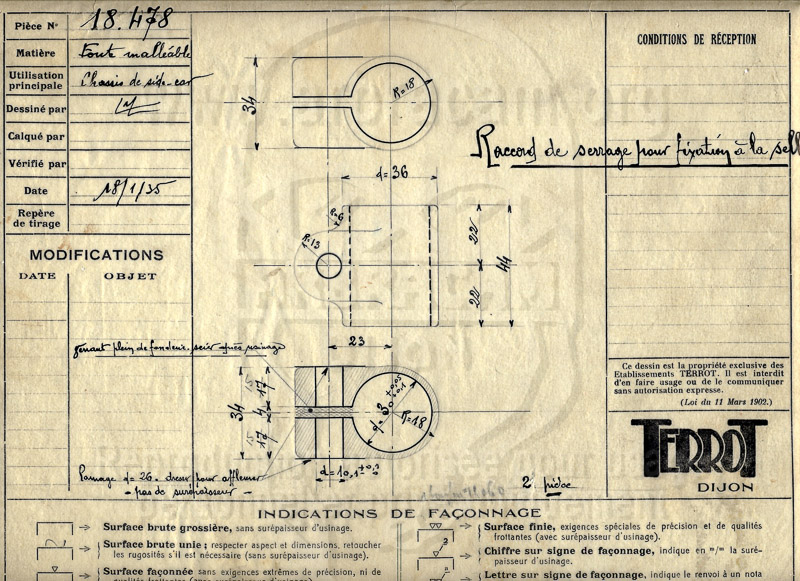 Pièce N° 18.478
Matière Fonte malléable
Utilisation
principale Chassis de side-car
Dessiné par
Calqué par
Vérifié par
Date 18/1/35
Repère
de tirage
MODIFICATIONS
DATE OBJET
CONDITIONS DE RÉCEPTION
Raccord de serrage pour fixation à la sell
34
R=18
d=36
R=6
R=13
22
22
44
23
venant plein de fonderie. scier après usinage
34
17
4
17
15
15
R=18
d=10,1
Lamage d=26 - dresser pour affleurer
- pas de surépaisseur -
2 pièce
Ce dessin est la propriété exclusive des
Etablissements TERROT. Il est interdit
d'en faire usage ou de le communiquer
sans autorisation expresse.
(Loi du 11 Mars 1902.)
TERROT
DIJON
INDICATIONS DE FAÇONNAGE
Surface brute grossière, sans surépaisseur d'usinage.
Surface brute unie; respecter aspect et dimensions, retoucher
les rugosités s'il est nécessaire (sans surépaisseur d'usinage).
Surface façonnée sans exigences extrêmes de précision, ni de
Surface finie, exigences spéciales de précision et de qualités
frottantes (avec surépaisseur d'usinage).
3
Chiffre sur signe de façonnage, indique en m/m la suré-
paisseur d'usinage.
a
Lettre sur signe de façonnage, indique le renvoi à un nota